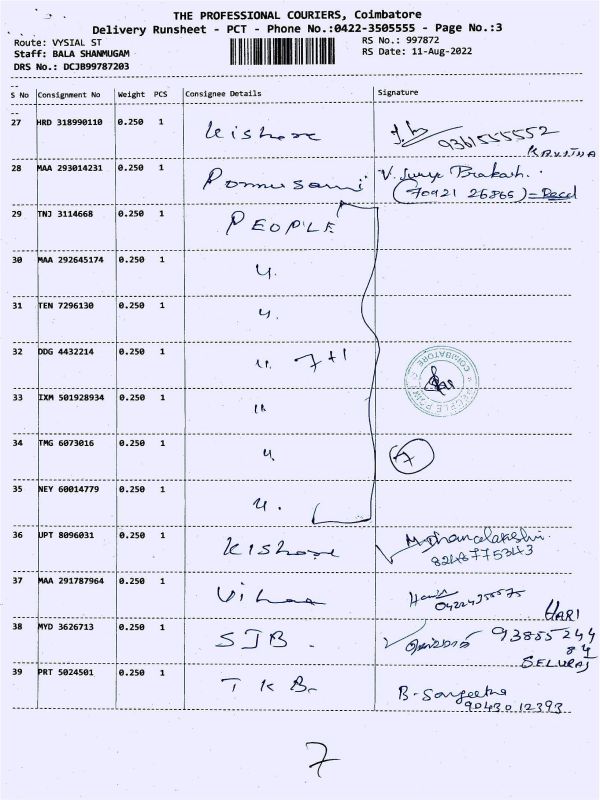 THE PROFESSIONAL COURIERS, Coimbatore
Delivery Runsheet - PCT - Phone No.:0422-3505555 - Page No.:3
Route: VYSIAL ST
RS No.: 997872
Staff: BALA SHANMUGAM
RS Date: 11-Aug-2022
DRS No.: DCJB99787203
S No Consignment No Weight PCS Consignee Details Signature
27 HRD 318990110 0.250 1 Kishore 9361555552
KAVITHA
28 MAA 293014231 0.250 1 Ponnusami V. Surya Prakash.
(70921 26865) = Recd
29 TNJ 3114668 0.250 1 PEOPLE
30 MAA 292645174 0.250 1 "
31 TEN 7296130 0.250 1 "
32 DDG 4432214 0.250 1 " 7+1
COIMBATORE
PEOPLE PARK
33 IXM 501928934 0.250 1 "
34 TMG 6073016 0.250 1 " 7
35 NEY 60014779 0.250 1 "
36 UPT 8096031 0.250 1 Kishore M. Dhanalakshmi
8248775343
37 MAA 291787964 0.250 1
HARI
38 MYD 3626713 0.250 1 SJB. 93855244
84
SELVRAJ
39 PRT 5024501 0.250 1 TKB. B-Sangeetha
9043012393
7